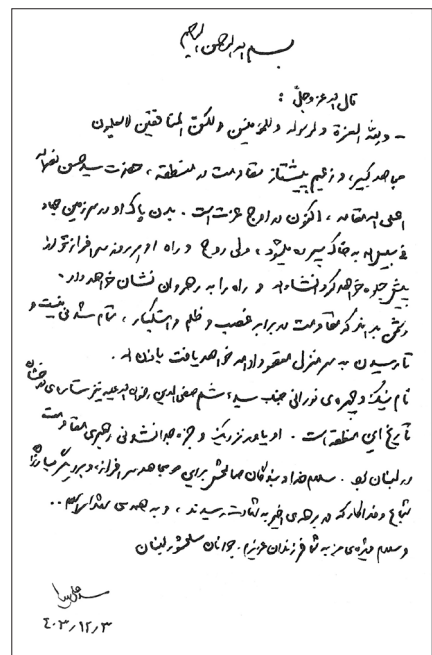 بسم الله الرحمن الرحیم
قال الله عزوجلّ:
- و لله العزة و لرسوله و للمؤمنین و لکن المنافقین لایعلمون
مجاهد کبیر، و زعیم پیشتاز مقاومت در منطقه، حضرت سید حسن نصرالله
اعلی الله مقامه، اکنون در اوج عزت است. بدن پاک او در سرزمین جهاد
فی سبیل الله به خاک سپرده میشود، ولی روح و راه او هر روز سرافرازتر از
پیش جلوه خواهد کرد انشاءالله و راه را به رهروان نشان خواهد داد.
دشمن بداند که مقاومت در برابر غصب و ظلم و استکبار، تمام شدنی نیست و
تا رسیدن به سرمنزل مقصود ادامه خواهد یافت باذن الله.
نام نیک و چهره‌ی نورانی جناب سید هاشم صفی الدین رضوان الله علیه نیز ستاره‌ی درخشان
تاریخ این منطقه است. او یاور نزدیک و جزء جدانشدنی رهبری مقاومت
در لبنان بود. سلام خدا و بندگان صالحش برای دو مجاهد سرافراز، و بر دیگر مبارزان
شجاع و فداکار که در برهه‌ی اخیر به شهادت رسیدند، و به همه‌ی شهدای اسلام..
و سلام ویژه‌ی من به شما فرزندان عزیزم. جوانان سلحشور لبنان
۴۰۳/۱۲/۳